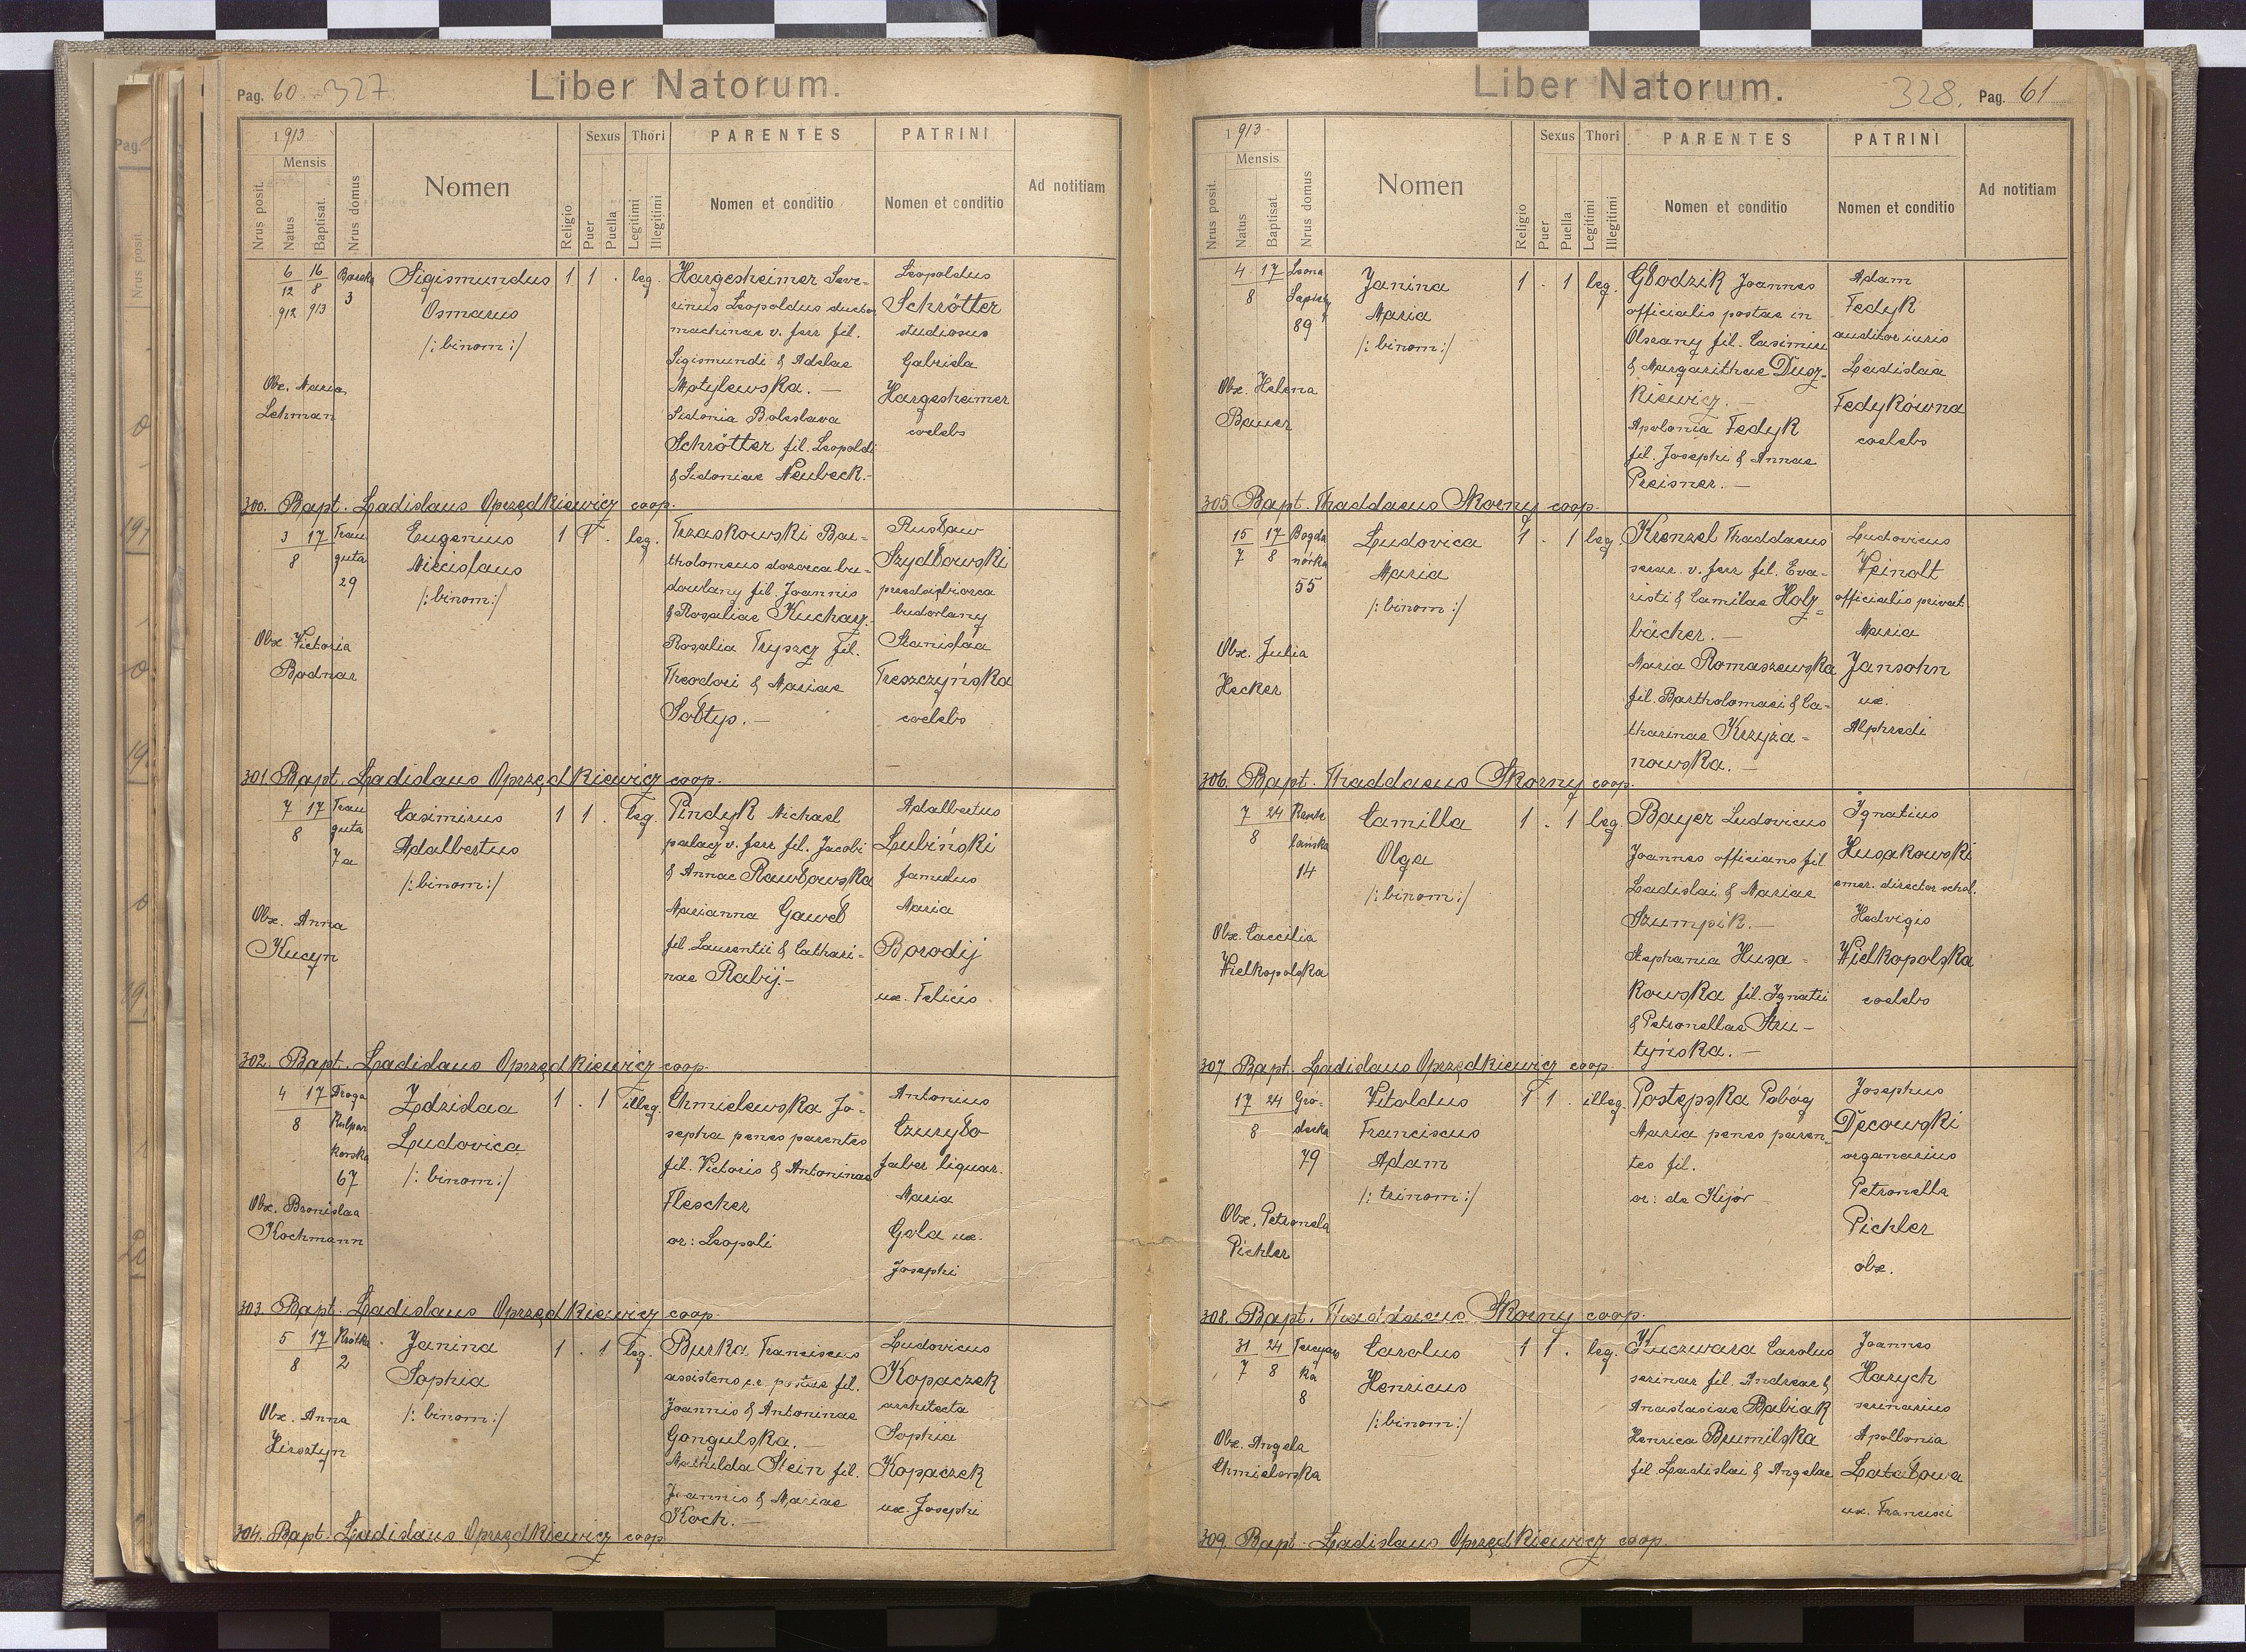 Pag. 60 327 Liber Natorum.
1913
Mensis
Nrus posit.
Natus
Baptisat.
Nrus domus
Nomen
Religio
Sexus
Puer
Puella
Thori
Legitimi
Illegitimi
PARENTES
Nomen et conditio
PATRINI
Nomen et conditio
Ad notitiam
6 16
12 8
912 913
3
Sigismundus
Osmarus
/:binom:/
Obx. Maria
Lehman
1 1 . leg.
Hargesheimer Seve-
rinus Leopoldus
machinae v. ferr fil.
Sigismundi & Adelae
Motylewska. —
Sidonia Boleslava
Schrötter fil. Leopoldi
& Sidoniae Neubeck.-
Leopoldus
Schrötter
studiosus
Gabriela
Hargesheimer
coelebs
300. Bapt. Ladislaus Oprzędkiewicz coop.
3 17 Trau
8 guta
29
Eugenius
Miecislaus
/:binom:/
Obx Victoria
Bodnar
1 1 . leg.
Trzaskowski Bar-
tholomeus dozorca bu-
dowlany fil. Joannis
& Rosaliae Kucharz.
Rosalia Tryszcz fil.
Theodori & Mariae
Sołtys. —
Rusław
Szydłowski
przedsiębiorca
budowlany
Stanislaa
Treszczyńska
coelebs
301. Bapt. Ladislaus Oprzędkiewicz coop.
7 17 Trau
8 guta
7a
Casimirus
Adalbertus
/:binom:/
Obx. Anna
Kucyn
1 1 . leg.
Pindyk Michael
palacz v. ferr fil. Jacobi
& Annae Rawłowska
Marianna Gaweł
fil. Laurentii & Cathari-
nae Rabij.-
Adalbertus
Lubiński
famulus
Maria
Borodij
ux. Felicis
302. Bapt. Ladislaus Oprzędkiewicz coop.
4 17 Droga
8 Kulpar
kowska
67
Zdzislaa
Ludovica
/:binom:/
Obx. Bronislaa
Kochmann
1 . 1 illeg.
Chmielewska Jo-
sepha penes parentes
fil. Victoris & Antoninae
Flescher
or: Leopoli
Antonius
Czuryło
faber lignar.
Maria
Gola ux.
Josephi
303. Bapt. Ladislaus Oprzędkiewicz coop.
5 17 Krótka
8 2
Janina
Sophia
/:binom:/
Obx. Anna
Hirsztyn
1 . 1 leg.
Burka Franciscus
assistens c.r. postae fil.
Joannis & Antoninae
Gongulska. —
Mathilda Stein fil.
Joannis & Mariae
Koch. —
Ludovicus
Kopaczek
architecta
Sophia
Kopaczek
ux. Josephi
304. Bapt. Ladislaus Oprzędkiewicz coop.
Liber Natorum. 328. Pag. 61
1913
Mensis
Nrus posit.
Natus
Baptisat.
Nrus domus
Nomen
Religio
Sexus
Puer
Puella
Thori
Legitimi
Illegitimi
PARENTES
Nomen et conditio
PATRINI
Nomen et conditio
Ad notitiam
4 17 Leona
8 Sapiehy
89
Janina
Maria
/:binom:/
Obx. Helena
Bauer
1 . 1 leg.
Głodzik Joannes
officialis postae in
Olszany fil. Casimiri
& Margarithae Dusz-
kiewicz. —
Apolonia Fedyk
fil. Josephi & Annae
Preisner. —
Adam
Fedyk
auditor iuris
Ladislaa
Fedykówna
coelebs
305. Bapt. Thaddaeus Skorny coop.
15 17 Bogda
7 8 nówka
55
Ludovica
Maria
/:binom:/
Obx. Julia
Hecker
1 . 1 leg.
Krenzel Thaddaeus
v. ferr fil. Eva-
risti & Camilae Holz-
bächer. —
Maria Romaszewska
fil. Bartholomaei & Ca-
tharinae Krzyża-
nowska. —
Ludovicus
Weinolt
officialis privat.
Maria
Jansohn
ux.
Alphredi
306. Bapt. Thaddaeus Skorny coop.
7 24
8
14
Camilla
Olga
/:binom:/
Obx. Caecilia
Wielkopolska
1 . 1 leg.
Bayer Ludovicus
Joannes officians fil.
Ladislai & Mariae
Szumpik. —
Stephania Husa-
kowska fil. Ignatii
& Petronellae Stru-
tyńska. —
Ignatius
Husakowski
emer. director schol.
Hedvigis
Wielkopolska
coelebs
307. Bapt. Ladislaus Oprzędkiewicz coop.
17 24 Gró-
8 decka
79
Vitoldus
Franciscus
Adam
/:trinom:/
Obx. Petronela
Pichler
1 1 . illeg.
Postępska Pobóg
Maria penes paren-
tes fil.
or: de Kijów
Josephus
Decowski
organarius
Petronella
Pichler
obx.
308. Bapt. Thaddaeus Skorny coop.
31 24
7 8 ka
8
Carolus
Henricus
/:binom:/
Obx. Angela
Chmielewska
1 1 . leg.
Kuczwara Carolus
serinar fil. Andreae &
Anastasiae Babiak
Henrica Brumilska
fil Ladislai & Angelae
Joannes
Harych
serinarius
Apollonia
Latałowa
ux. Francisci
309. Bapt. Ladislaus Oprzędkiewicz coop.